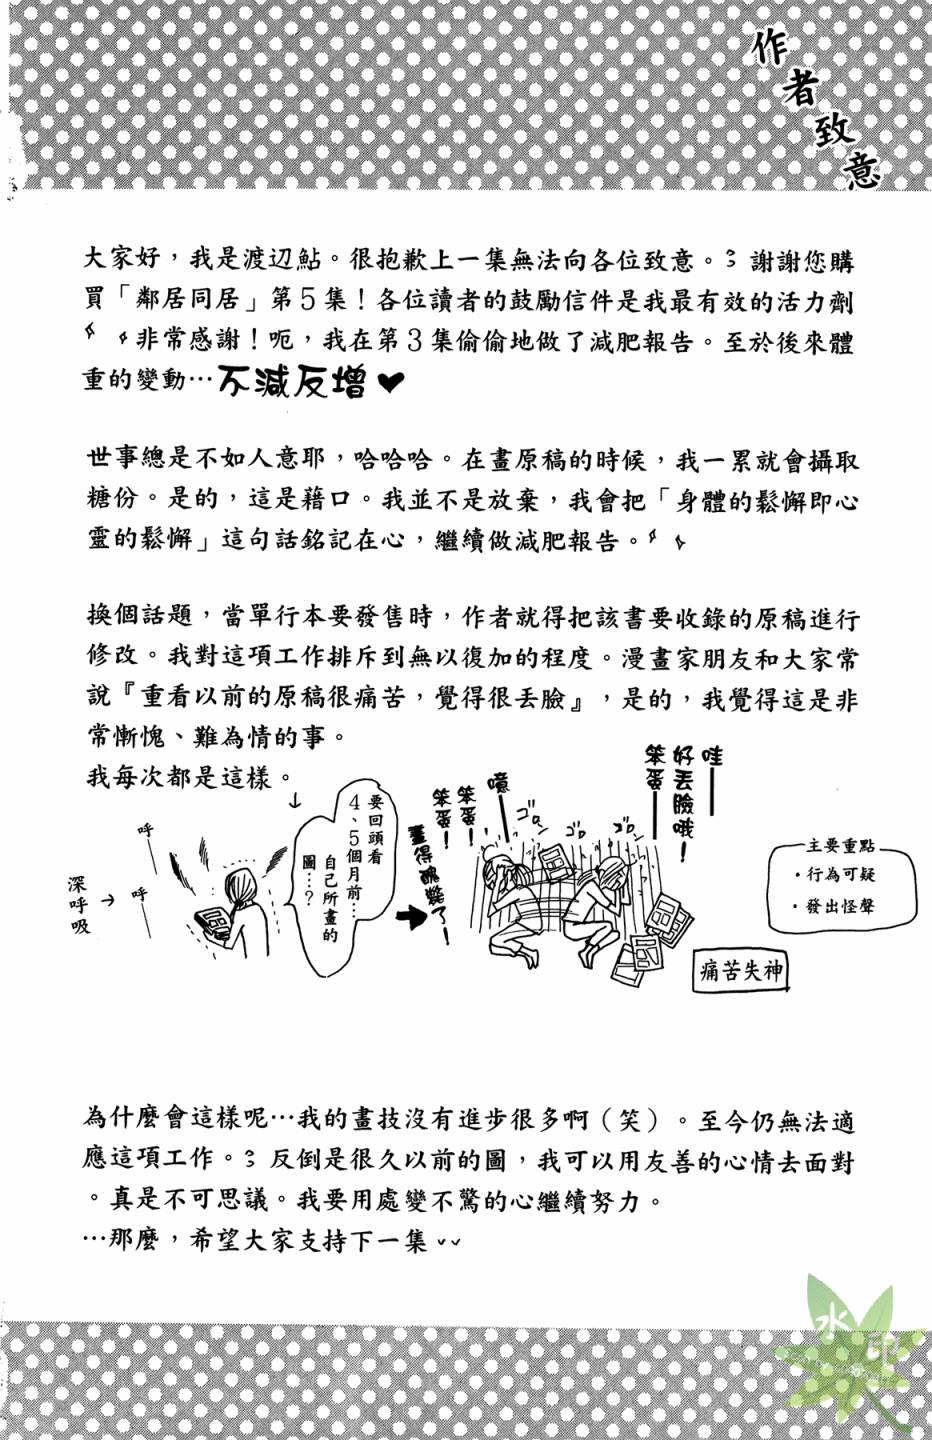 作者致意
大家好，我是渡辺鮎。很抱歉上一集無法向各位致意。謝謝您購
買「鄰居同居」第5集！各位讀者的鼓勵信件是我最有效的活力劑
非常感謝！呃，我在第3集偷偷地做了減肥報告。至於後來體
重的變動…不減反增♥
世事總是不如人意耶，哈哈哈。在畫原稿的時候，我一累就會攝取
糖份。是的，這是藉口。我並不是放棄，我會把「身體的鬆懈即心
靈的鬆懈」這句話銘記在心，繼續做減肥報告。
換個話題，當單行本要發售時，作者就得把該書要收錄的原稿進行
修改。我對這項工作排斥到無以復加的程度。漫畫家朋友和大家常
說『重看以前的原稿很痛苦，覺得很丟臉』，是的，我覺得這是非
常慚愧、難為情的事。
我每次都是這樣。
↓
深呼吸
→
呼
呼
要回頭看
4、5個月前…
自己所畫的
圖…？
畫得醜斃了！
笨蛋！
笨蛋！
噫
ゴロ
ゴロ
ゴロ
哇
好丟臉哦！
笨蛋
主要重點
・行為可疑
・發出怪聲
痛苦失神
為什麼會這樣呢…我的畫技沒有進步很多啊（笑）。至今仍無法適
應這項工作。反倒是很久以前的圖，我可以用友善的心情去面對
。真是不可思議。我要用處變不驚的心繼續努力。
…那麼，希望大家支持下一集
水印